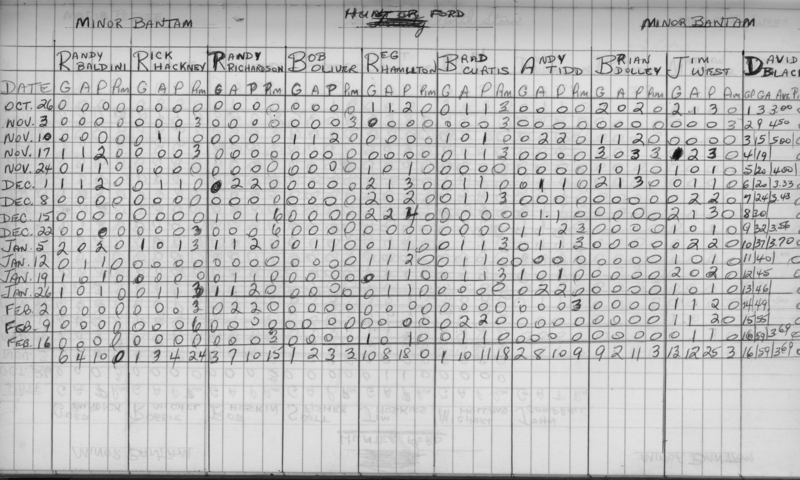 MINOR BANTAM HUNTER FORD MINOR BANTAM
RANDY BALDINI RICK HACKNEY RANDY RICHARDSON BOB OLIVER REG HAMILTON BRAD CURTIS ANDY TIDD BRIAN DOLLEY JIM WEST DAVID BLACK
DATE G A P Pm G A P Pm G A P Pm G A P Pm G A P Pm G A P Pm G A P Pm G A P Pm G A P Pm GP GA Am
OCT. 26 0 0 0 0 0 0 0 0 0 0 0 0 0 0 0 0 1 1 2 0 0 1 1 3 0 0 0 0 2 0 2 0 2 1 3 0 1 3 3.00
NOV. 3 0 0 0 0 0 0 0 3 0 0 0 0 0 0 0 3 0 0 0 0 0 0 0 3 0 0 0 0 0 0 0 0 0 0 0 3 2 9 4.50
NOV. 10 0 0 0 0 0 1 1 0 0 0 0 0 1 1 2 0 0 0 0 0 1 0 1 0 0 2 2 0 1 1 2 0 0 0 0 0 3 15 5.00
NOV. 17 1 1 2 0 0 0 0 3 0 0 0 0 0 0 0 0 0 0 0 0 0 1 1 3 0 0 0 0 3 0 3 3 2 3 0 4 19
NOV. 24 0 1 1 0 0 0 0 0 0 0 0 0 0 0 0 0 1 0 1 0 0 0 0 0 0 0 0 0 1 0 1 0 1 0 1 0 5 20 4.00
DEC. 1 1 1 2 0 0 1 1 0 0 2 2 0 0 0 0 0 2 1 3 0 0 1 1 0 0 1 1 0 2 1 3 0 0 1 1 0 6 20 3.33
DEC. 8 0 0 0 0 0 0 0 0 0 0 0 0 0 0 0 0 2 0 2 0 0 1 1 3 0 0 0 0 0 0 0 0 0 2 2 0 7 24 3.43
DEC. 15 0 0 0 0 0 0 0 0 1 0 1 6 0 0 0 0 2 2 4 0 0 0 0 0 0 1 1 0 0 0 0 0 2 1 3 0 8 20
DEC. 22 0 0 0 0 0 0 0 3 0 0 0 6 0 0 0 0 0 0 0 0 0 0 0 0 1 1 2 3 0 0 0 0 1 0 1 0 9 32 3.56
JAN. 5 2 0 2 0 1 0 1 3 1 1 2 0 0 1 1 0 0 1 1 0 0 1 1 3 0 1 1 3 0 0 0 0 0 2 2 0 10 37 3.70
JAN. 12 0 1 1 0 0 0 0 0 0 0 0 0 0 0 0 0 1 1 2 0 0 0 0 0 0 0 0 0 0 0 0 0 1 0 1 0 11 40
JAN. 19 1 0 1 0 0 0 0 0 0 0 0 0 0 0 0 0 0 1 1 0 0 1 1 3 1 0 1 0 0 0 0 0 2 0 2 0 12 45
JAN. 26 1 0 1 0 0 1 1 3 1 1 2 0 0 0 0 0 0 1 1 0 0 0 0 0 0 2 2 0 0 0 0 0 1 0 1 0 13 46
FEB. 2 0 0 0 0 0 0 0 3 0 2 2 0 0 0 0 0 0 0 0 0 0 0 0 0 0 0 0 3 0 0 0 0 1 1 2 0 14 49
FEB. 9 0 0 0 0 0 0 0 6 0 0 0 0 0 0 0 0 0 0 0 0 0 2 2 0 0 0 0 0 0 0 0 0 1 1 2 0 15 55
FEB. 16 0 0 0 0 0 0 0 0 0 0 0 3 0 0 0 0 1 0 1 0 0 0 0 0 0 0 0 0 0 0 0 0 0 1 1 0 16 59 3.69
6 4 10 0 1 3 4 24 3 7 10 15 1 2 3 3 10 8 18 0 1 10 11 18 2 8 10 9 9 2 11 3 13 12 25 3 16 59 3.69